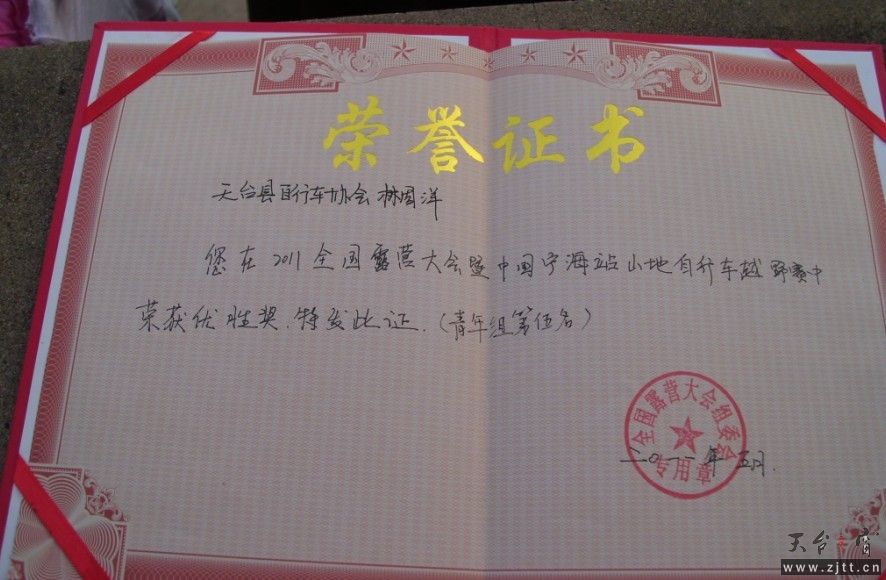 荣誉证书
天台县自行车协会 林国洋
您在2011全国露营大会暨中国宁海站山地自行车越野赛中
荣获优胜奖.特发此证.(青年组第伍名)
全国露营大会组委会
专用章
二〇一一年五月.
天台之窗
www.zjtt.cn